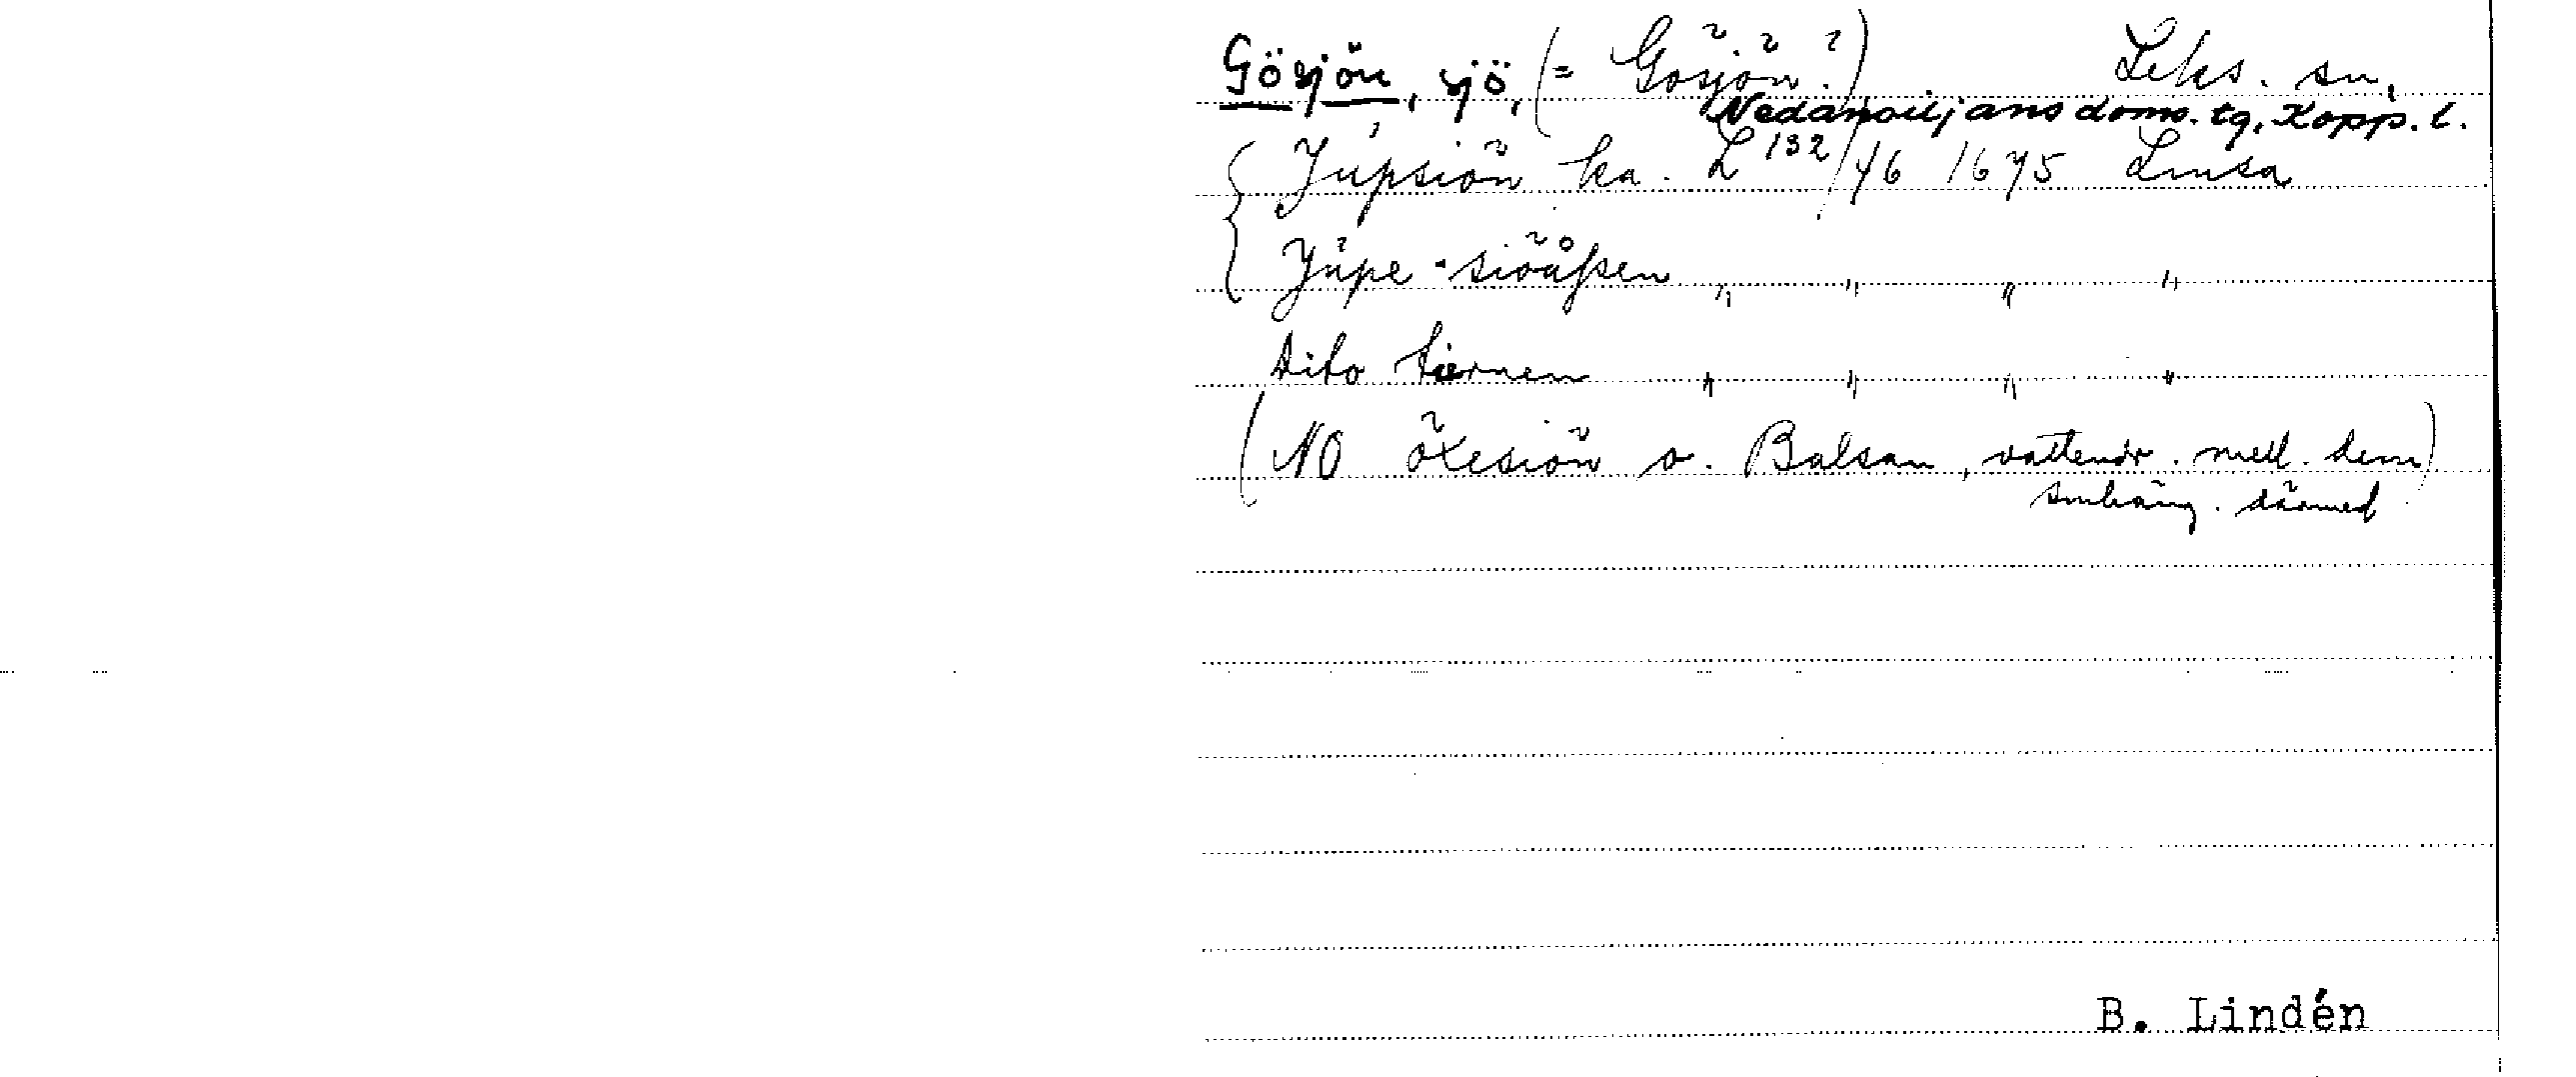 Gösjön, sjö, (= Gösjön?) Leks. sn,
Nedansiljans doms. tg, Kopp. l.
Jupsiön ka. L 132/46 1675 Smsa
Jupe-siöåßen " " " "
dito tiernen " " " "
(NO öxesiön o. Balsan, vattendr. mell. dem
smhäng. därmed)
B. Lindén